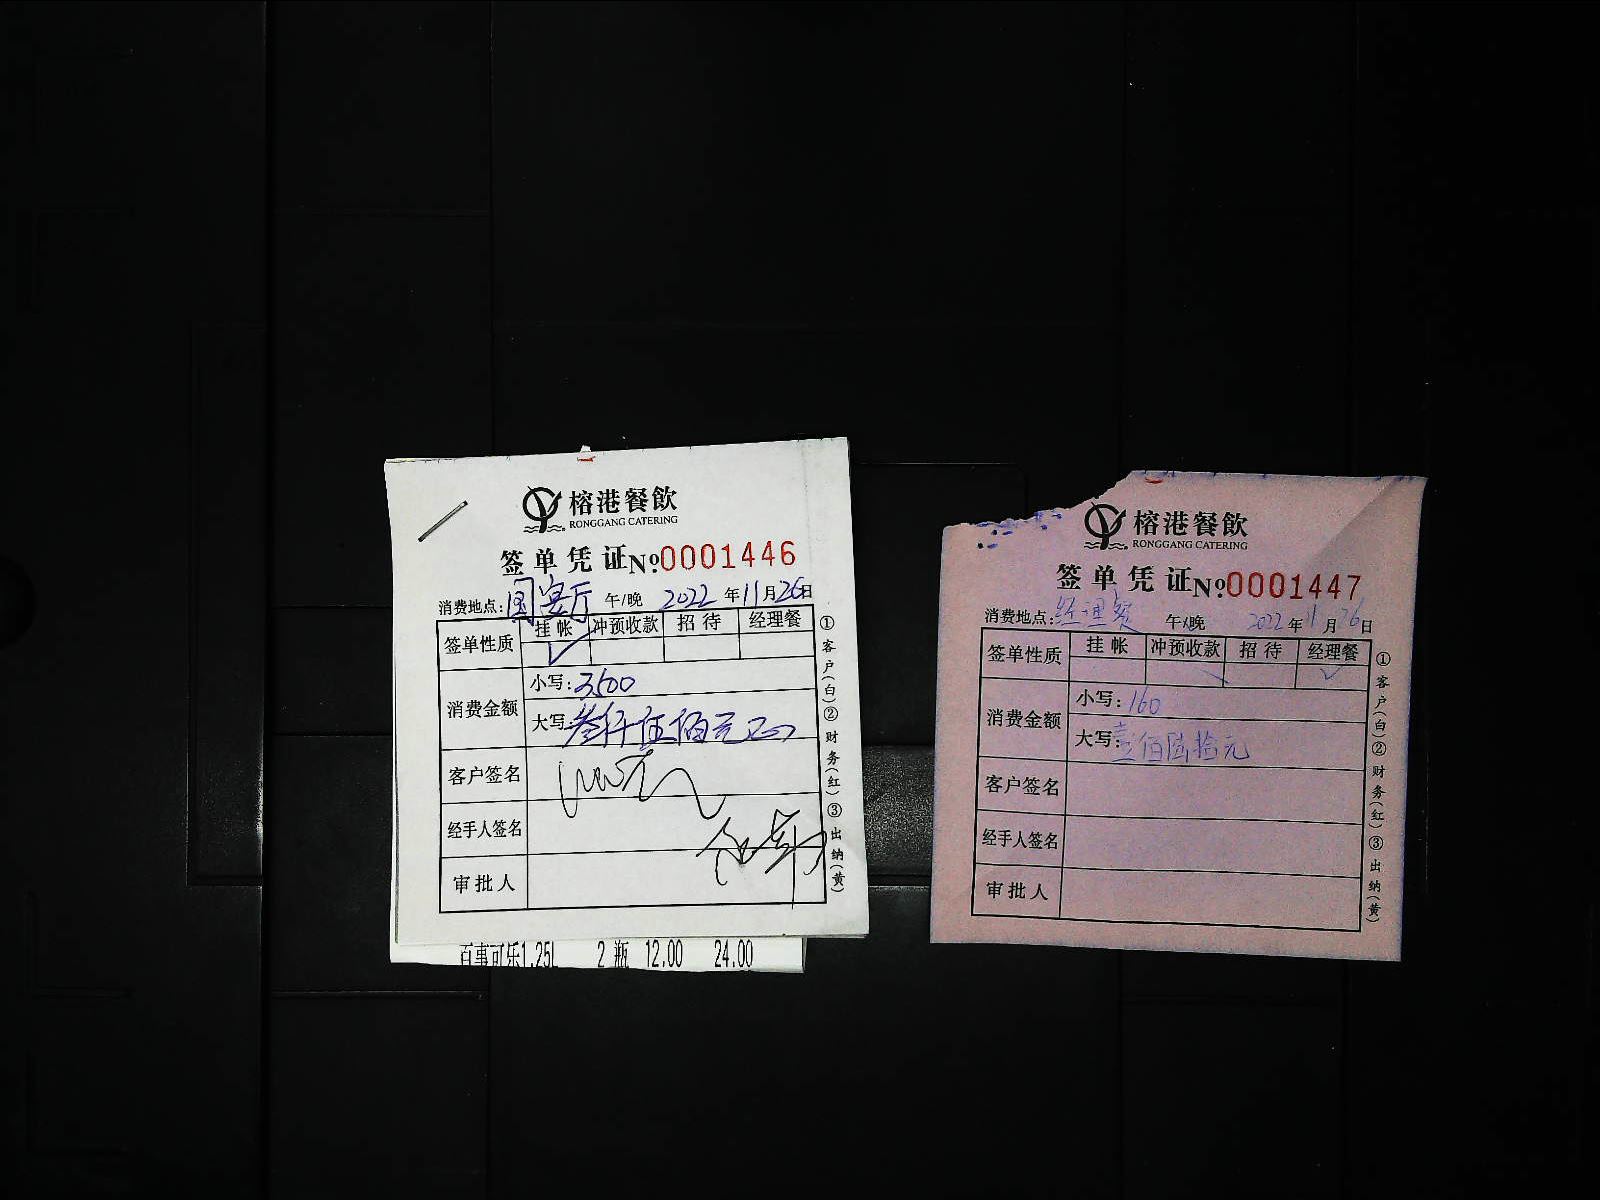 榕港餐飲
RONGGANG CATERING
签单凭证 №0001446
消费地点：国宴厅 午/晚 2022年11月26日
签单性质 挂帐 冲预收款 招待 经理餐
消费金额
小写：3500
大写：叁仟伍佰元正
客户签名
经手人签名
审批人
①客户（白）②财务（红）③出纳（黄）
百事可乐1.25L 2 瓶 12.00 24.00
榕港餐飲
RONGGANG CATERING
签单凭证 №0001447
消费地点：经理餐 午/晚 2022年11月26日
签单性质 挂帐 冲预收款 招待 经理餐
消费金额
小写：160
大写：壹佰陆拾元
客户签名
经手人签名
审批人
①客户（白）②财务（红）③出纳（黄）